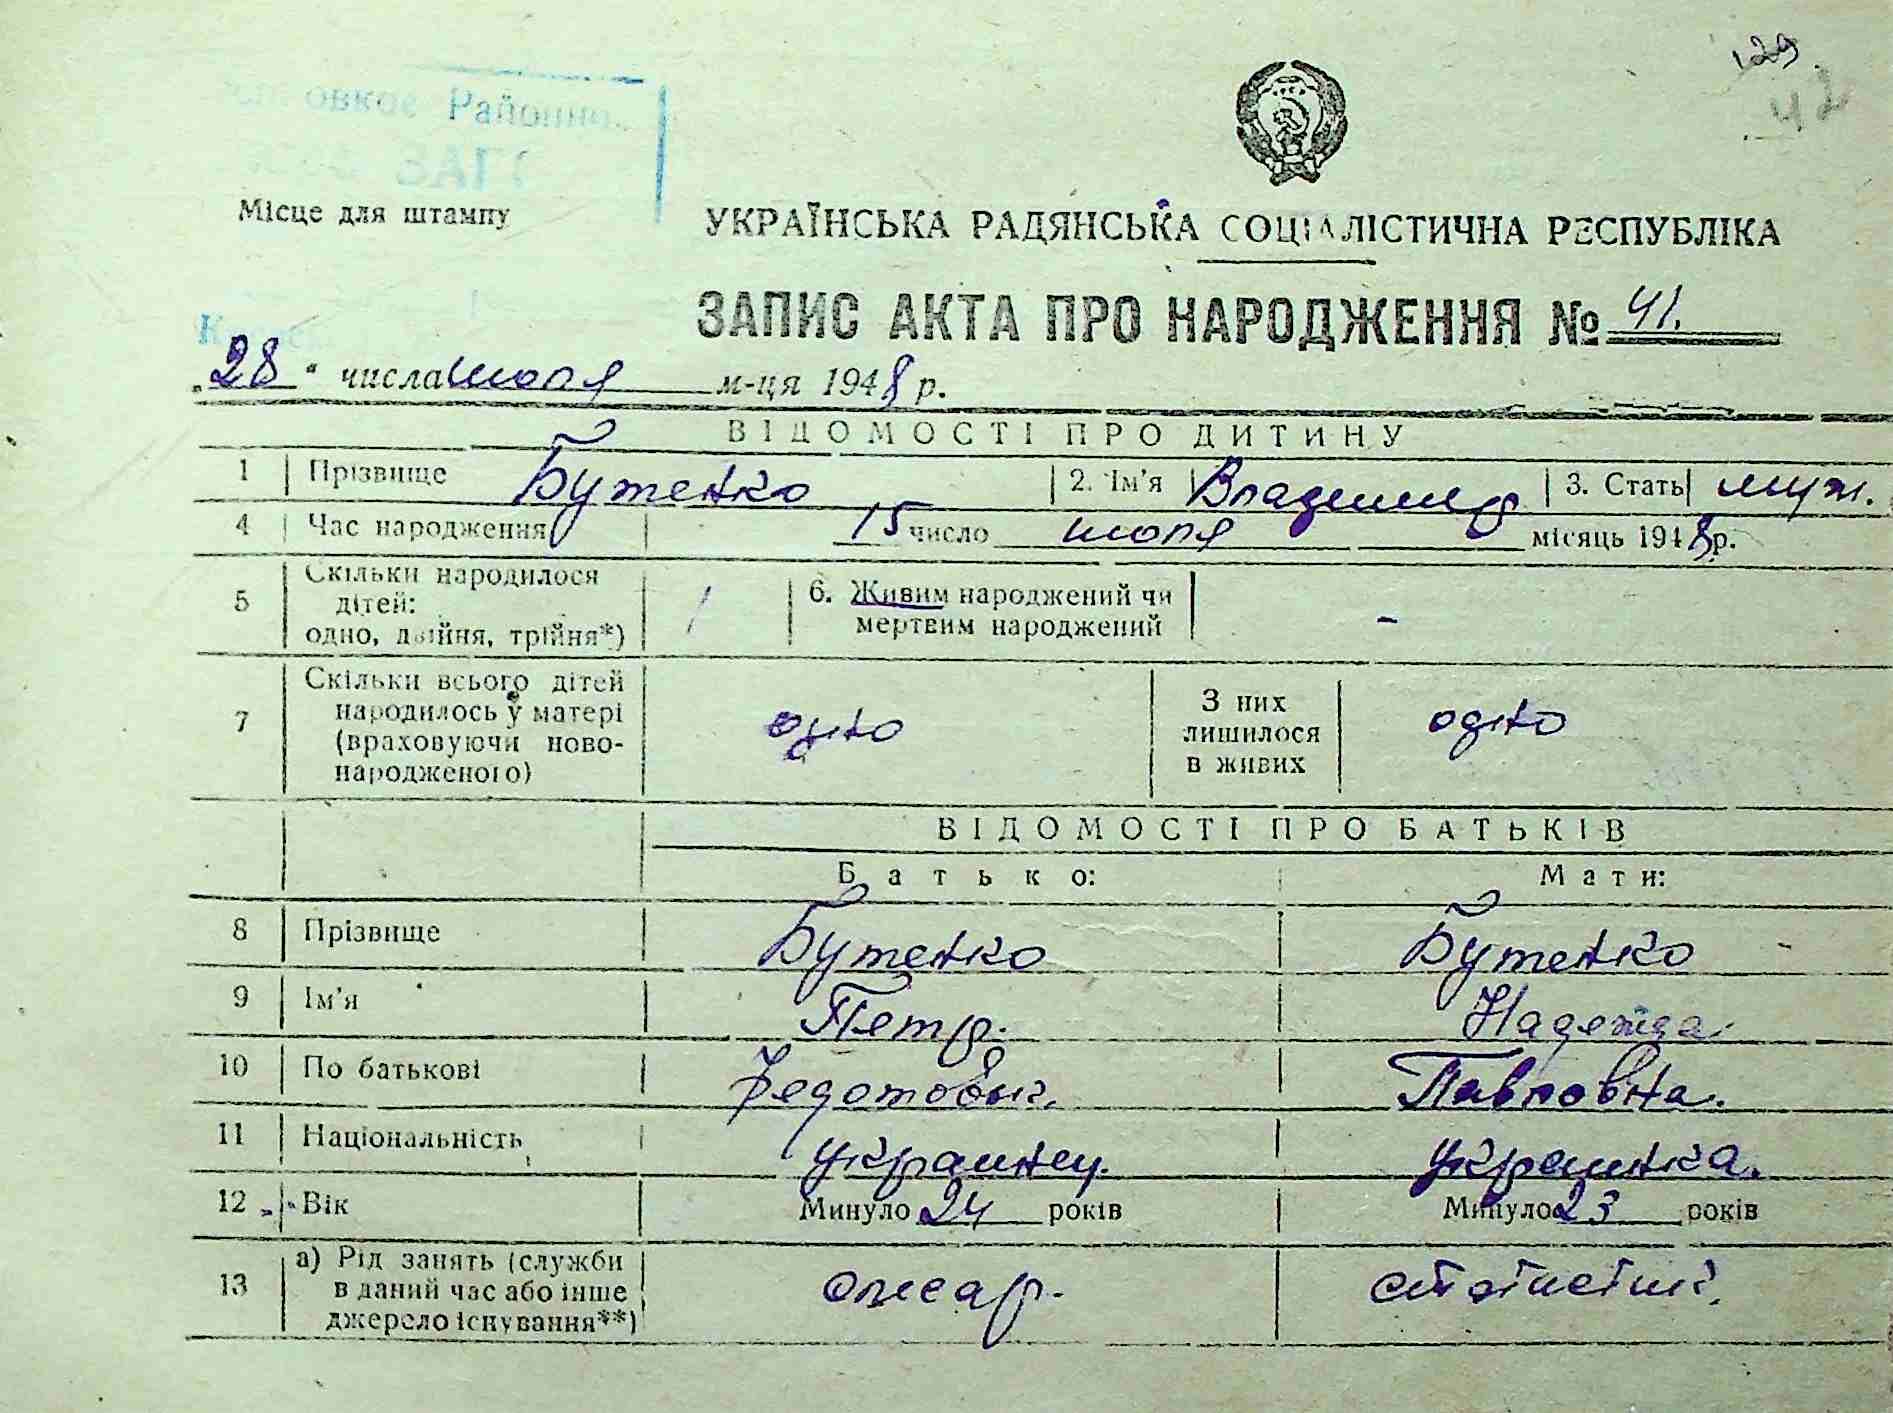 129
42
Районно
ЗАГС
Місце для штампу
УКРАЇНСЬКА РАДЯНСЬКА СОЦІАЛІСТИЧНА РЕСПУБЛІКА
ЗАПИС АКТА ПРО НАРОДЖЕННЯ № 41.
„28“ числа июля м-ця 1948 р.
ВІДОМОСТІ ПРО ДИТИНУ
1 Прізвище Бутенко 2. Ім'я Владимир 3. Стать муж.
4 Час народження 15 число июля місяць 1948 р.
5 Скільки народилося дітей: одно, двійня, трійня*) 1 6. Живим народжений чи мертвим народжений -
7 Скільки всього дітей народилось у матері (враховуючи новонародженого) одно З них лишилося в живих одно
ВІДОМОСТІ ПРО БАТЬКІВ
Батько: Мати:
8 Прізвище Бутенко Бутенко
9 Ім'я Петр. Надежда
10 По батькові Федотович. Павловна.
11 Національність украинец. украинка.
12 Вік Минуло 24 років Минуло 23 років
13 а) Рід занять (служби в даний час або інше джерело існування**) слесар. статистик.